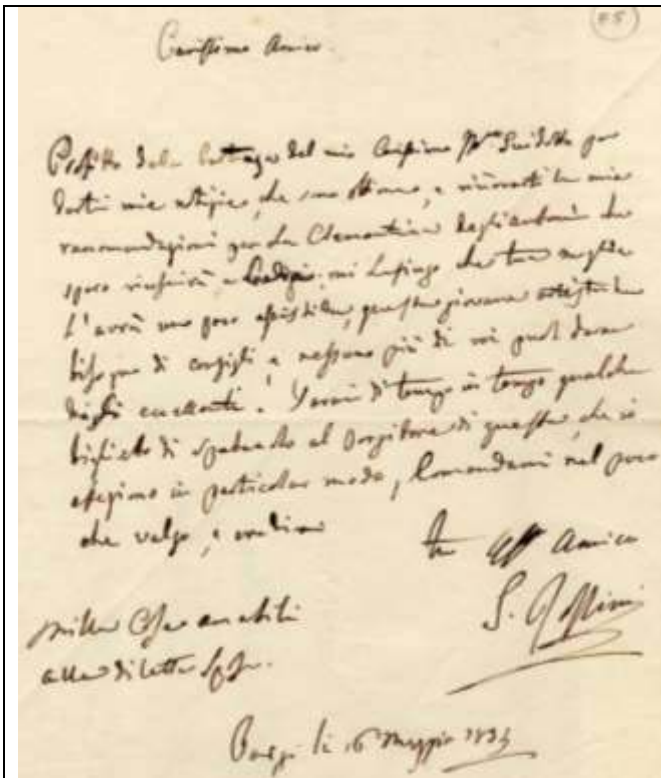 Carissimo Amico
Profitto della partenza del mio Carissimo Guidotti per
darti mie notizie, che sono ottime, e rinnovarti le mie
raccomandazioni per la Clementina degli Antoni che
spero riuscirà a mi lusingo che tua moglie
l'avrà un poco assistita, questa giovane artista ha
bisogno di consigli e nessuno più di voi può darne
degli eccellenti. Darai di tempo in tempo qualche
biglietto di spettacolo al porgitore di questa, che io
stimo in particolar modo, Comandami nel poco
che valgo, e credimi
tuo aff. Amico
G. Rossini
mille Cose amabili
alla diletta Sposa.
Parigi li 16 Maggio 1834